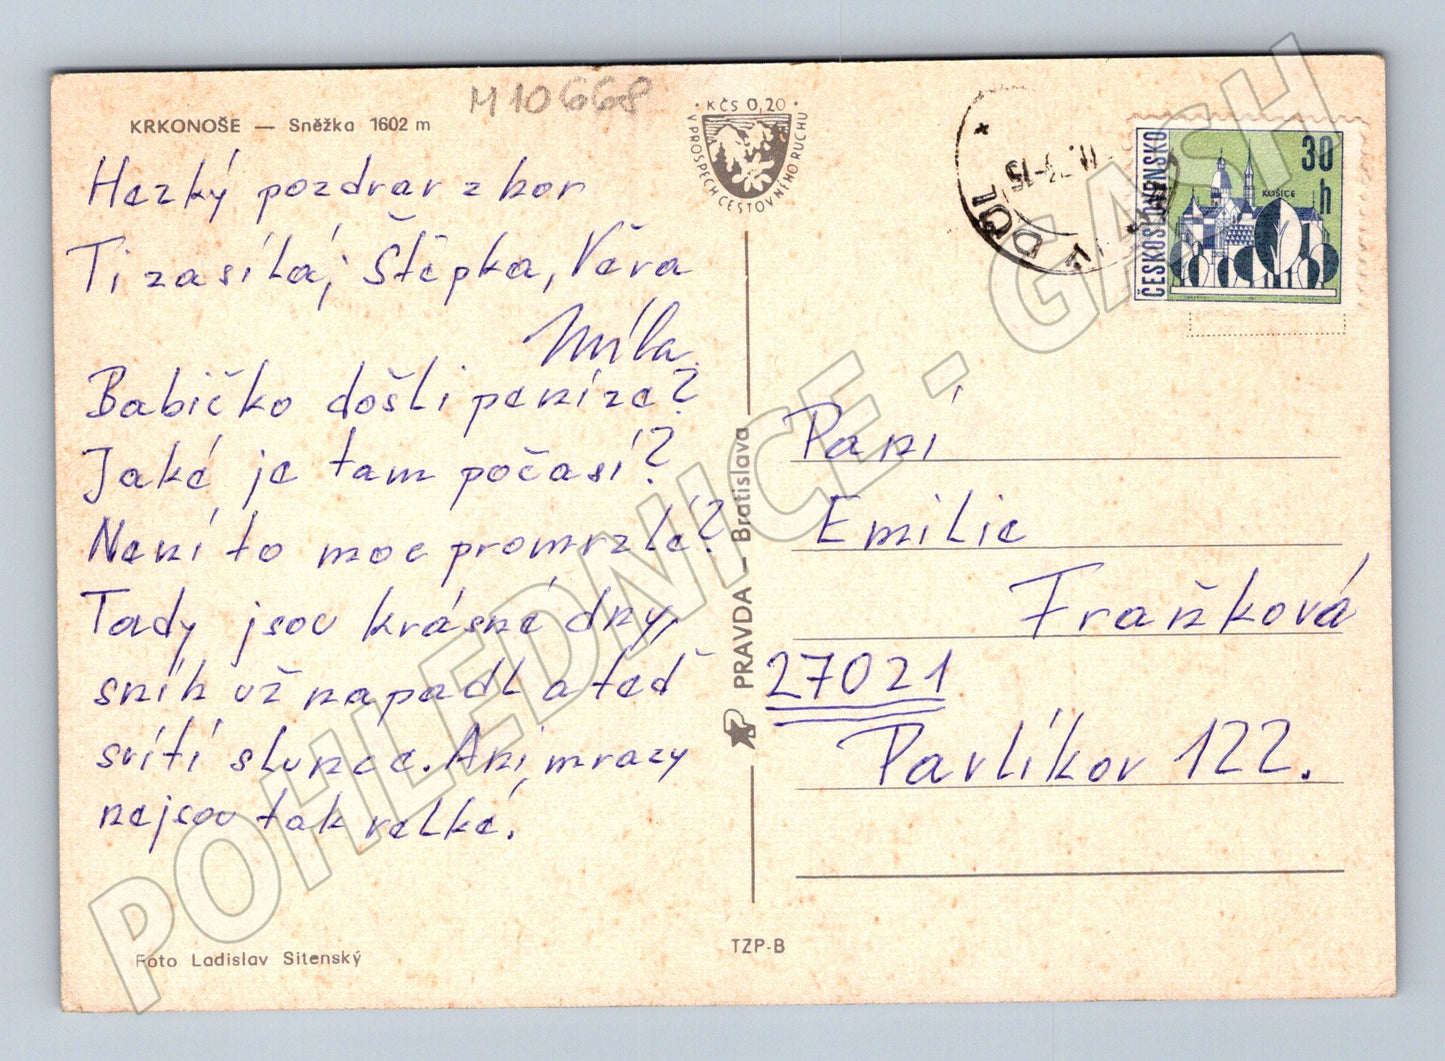 M10668
KRKONOŠE — Sněžka 1602 m
Hezký pozdrav z hor
Ti zasílá, Štěpka, Věra
Míla
Babičko došli peníze?
Jaké je tam počasí?
Není to moc promrzlé?
Tady jsou krásné dny,
sníh už napadl a teď
svítí slunce. Ani mrazy
nejsou tak velké.
Foto Ladislav Sitenský
· KČS 0,20 ·
V PROSPĚCH CESTOVNÍHO RUCHU
PRAVDA – Bratislava
TZP-B
ČESKOSLOVENSKO
30 h
KOŠICE
Paní
Emilie
Fraňková
27021
Pavlíkov 122.
POHLEDNICE - GASH